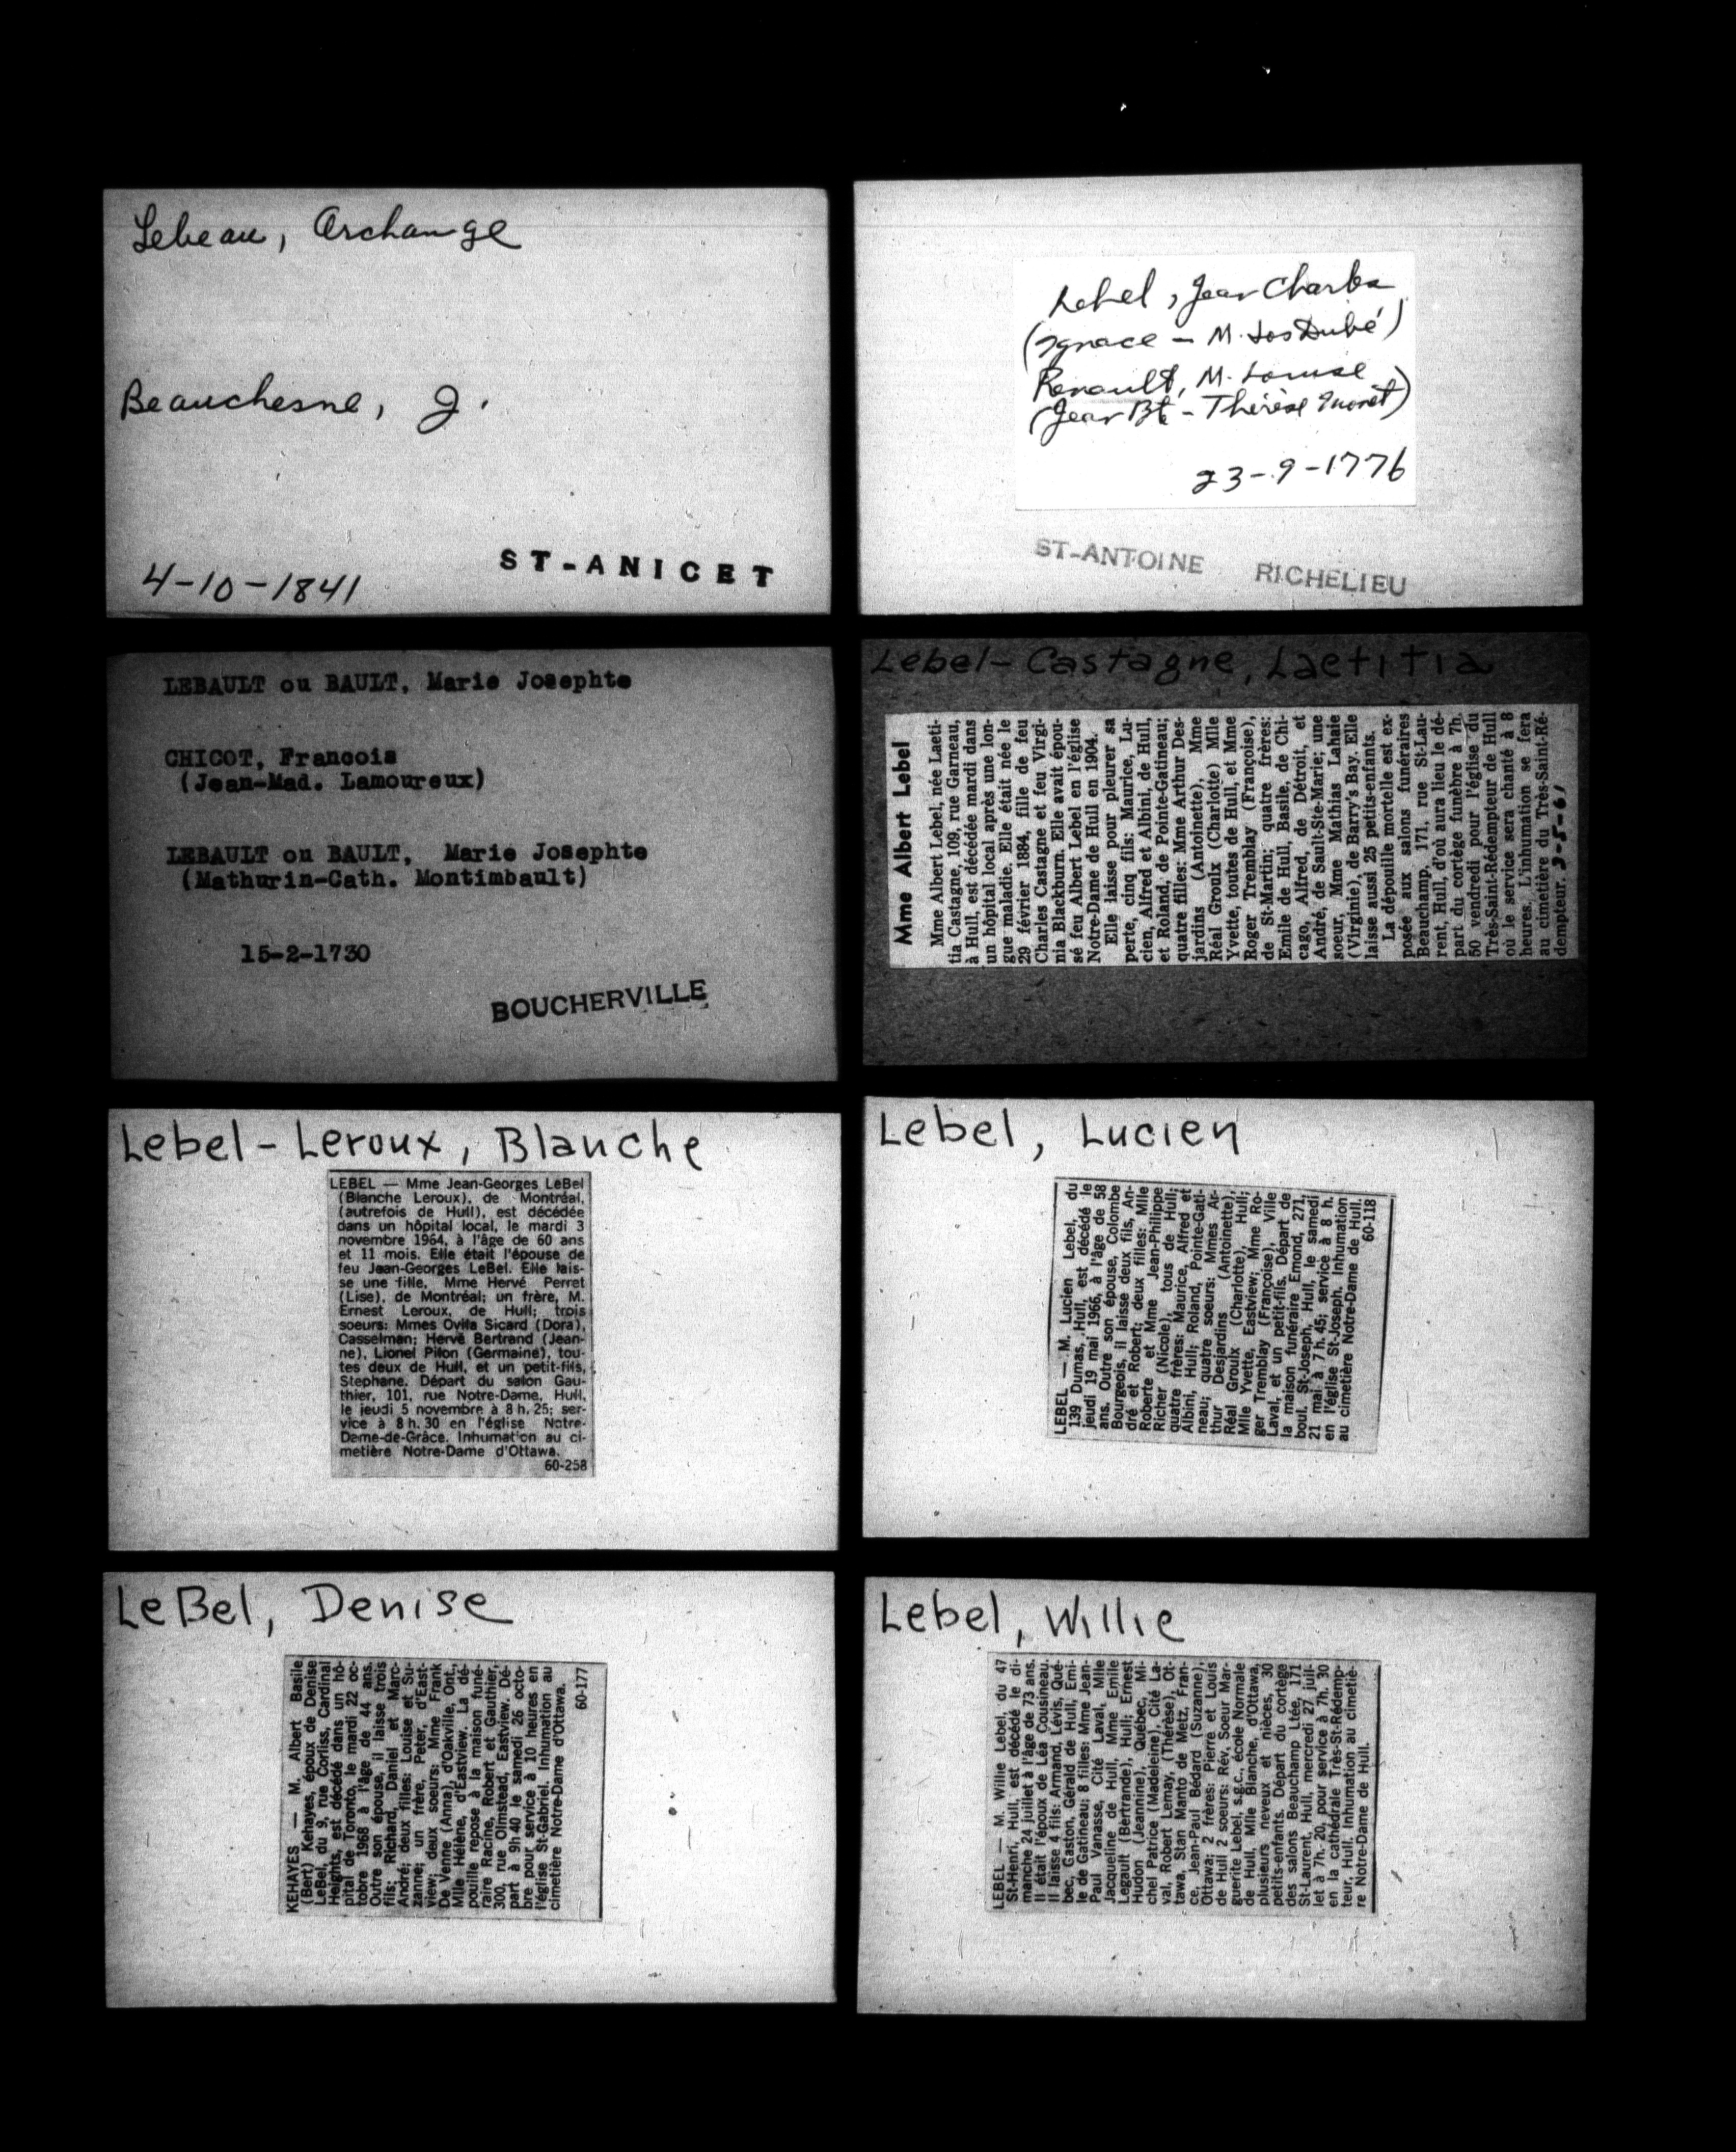 Lebeau, Archange
Beauchesne, J.
4-10-1841
ST-ANICET
Lebel, Jean Charles
(Ignace - M. Jos Dubé)
Renault, M. Louise
(Jean Bt - Thérèse)
23-9-1776
ST-ANTOINE RICHELIEU
LEBAULT ou BAULT, Marie Josephte
CHICOT, Francois
(Jean-Mad. Lamoureux)
LEBAULT ou BAULT, Marie Josephte
(Mathurin-Cath. Montimbault)
15-2-1730
BOUCHERVILLE
Lebel-Castagne, Laetitia
Mme Albert Lebel
Mme Albert Lebel, née Laeti-
tia Castagne, 109, rue Garneau,
à Hull, est décédée mardi dans
un hôpital local après une lon-
gue maladie. Elle était née le
29 février 1884, fille de feu
Charles Castagne et feu Virgi-
nia Blackburn. Elle avait épou-
sé feu Albert Lebel en l'église
Notre-Dame de Hull en 1904.
Elle laisse pour pleurer sa
perte, cinq fils: Maurice, Lu-
cien, Alfred et Albini, de Hull,
et Roland, de Pointe-Gatineau;
quatre filles: Mme Arthur Des-
jardins (Antoinette), Mme
Réal Groulx (Charlotte) Mlle
Yvette, toutes de Hull, et Mme
Roger Tremblay (Françoise),
de St-Martin; quatre frères:
Emile de Hull, Basile, de Chi-
cago, Alfred, de Détroit, et
André, de Sault-Ste-Marie; une
soeur, Mme Mathias Lahaie
(Virginie), de Barry's Bay. Elle
laisse aussi 25 petits-enfants.
La dépouille mortelle est ex-
posée aux salons funéraires
Beauchamp, 171, rue St-Lau-
rent, Hull, d'où aura lieu le dé-
part du cortège funèbre à 7h.
50 vendredi pour l'église du
Très-Saint-Rédempteur de Hull
où le service sera chanté à 8
heures. L'inhumation se fera
au cimetière du Très-Saint-Ré-
dempteur. 3-5-61
Lebel-Leroux, Blanche
LEBEL — Mme Jean-Georges LeBel
(Blanche Leroux), de Montréal,
(autrefois de Hull), est décédée
dans un hôpital local, le mardi 3
novembre 1964, à l'âge de 60 ans
et 11 mois. Elle était l'épouse de
feu Jean-Georges LeBel. Elle lais-
se une fille, Mme Hervé Perret
(Lise), de Montréal; un frère, M.
Ernest Leroux, de Hull; trois
soeurs: Mmes Ovila Sicard (Dora),
Casselman; Hervé Bertrand (Jean-
ne), Lionel Pilon (Germaine), tou-
tes deux de Hull, et un petit-fils,
Stephane. Départ du salon Gau-
thier, 101, rue Notre-Dame, Hull,
le jeudi 5 novembre à 8 h. 25; ser-
vice à 8 h. 30 en l'église Notre-
Dame-de-Grâce. Inhumation au ci-
metière Notre-Dame d'Ottawa.
60-258
Lebel, Lucien
LEBEL — M. Lucien Lebel, du
139 Dumas, Hull, est décédé le
jeudi 19 mai 1966, à l'âge de 58
ans. Outre son épouse, Colombe
Bourgeois, il laisse deux fils, An-
dré et Robert; deux filles: Mlle
Roberte et Mme Jean-Philippe
Richer (Nicole), tous de Hull;
quatre frères: Maurice, Alfred et
Albini, Hull; Roland, Pointe-Gati-
neau; quatre soeurs: Mmes Ar-
thur Desjardins (Antoinette),
Réal Groulx (Charlotte), Hull;
Mlle Yvette, Eastview; Mme Ro-
ger Tremblay (Françoise), Ville
Laval, et un petit-fils. Départ de
la maison funéraire Emond, 271,
boul. St-Joseph, Hull, le samedi
21 mai à 7 h. 45; service à 8 h.
en l'église St-Joseph. Inhumation
au cimetière Notre-Dame de Hull.
60-118
LeBel, Denise
KEHAYES — M. Albert Basile
(Bert) Kehayes, époux de Denise
LeBel, du 9, rue Corliss, Cardinal
Heights, est décédé dans un hô-
pital de Toronto, le mardi 22 oc-
tobre 1968 à l'âge de 44 ans.
Outre son épouse, il laisse trois
fils; Richard, Daniel et Marc-
André; deux filles: Louise et Su-
zanne; un frère, Peter, d'East-
view; deux soeurs: Mme Frank
De Venne (Anna), d'Oakville, Ont.,
Mlle Hélène, d'Eastview. La dé-
pouille repose à la maison funé-
raire Racine, Robert et Gauthier,
300, rue Olmstead, Eastview. Dé-
part à 9h 40 le samedi 26 octo-
bre pour service à 10 heures en
l'église St-Gabriel. Inhumation au
cimetière Notre-Dame d'Ottawa.
60-177
Lebel, Willie
LEBEL — M. Willie Lebel, du 47
St-Henri, Hull, est décédé le di-
manche 24 juillet à l'âge de 73 ans.
Il était l'époux de Léa Cousineau.
Il laisse 4 fils: Armand, Lévis, Qué-
bec, Gaston, Gérald de Hull, Emi-
le de Gatineau; 8 filles: Mme Jean-
Paul Vanasse, Cité Laval, Mlle
Jacqueline de Hull, Mme Emile
Legault (Bertrande), Hull; Ernest
Hudon (Jeannine), Québec, Mi-
chel Patrice (Madeleine), Cité La-
val, Robert Lemay, (Thérèse), Ot-
tawa, Stan Manto de Metz, Fran-
ce, Jean-Paul Bédard (Suzanne),
Ottawa; 2 frères: Pierre et Louis
de Hull 2 soeurs: Rév. Soeur Mar-
guerite Lebel, s.g.c., école Normale
de Hull, Mlle Blanche, d'Ottawa,
plusieurs neveux et nièces, 30
petits-enfants. Départ du cortège
des salons Beauchamp Ltée, 171
St-Laurent, Hull, mercredi 27 juil-
let à 7h. 20, pour service à 7h. 30
en la cathédrale Très-St-Rédemp-
teur, Hull. Inhumation au cimetiè-
re Notre-Dame de Hull.